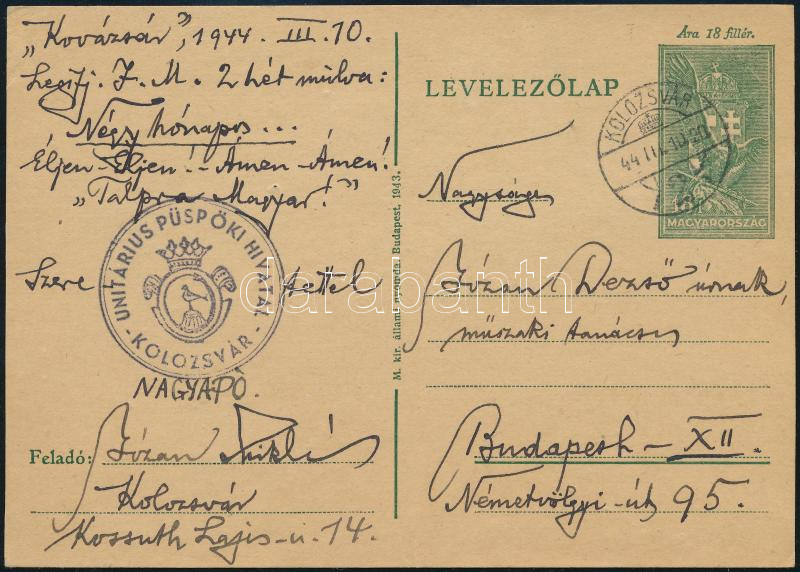 „Kovázsár”, 1944. III. 10.
Legifj. J. M. 2 hét mulva:
Négy hónapos...
Éljen-Éljen! - Ámen-Ámen!
„Talpra Magyar!”
Szere tettel
UNITÁRIUS PÜSPÖKI HIVATAL
- KOLOZSVÁR -
NAGYAPÓ.
Feladó: Józan Miklós
Kolozsvár
Kossuth Lajos-u. 14.
M. kir. állami nyomda, Budapest, 1943.
Ára 18 fillér.
LEVELEZŐLAP
KOLOZSVÁR
44 III. 10
MAGYARORSZÁG
Nagyságos
Józan Dezső úrnak,
műszaki tanácsos
Budapest - XII.
Németvölgyi-út 95.
darabanth